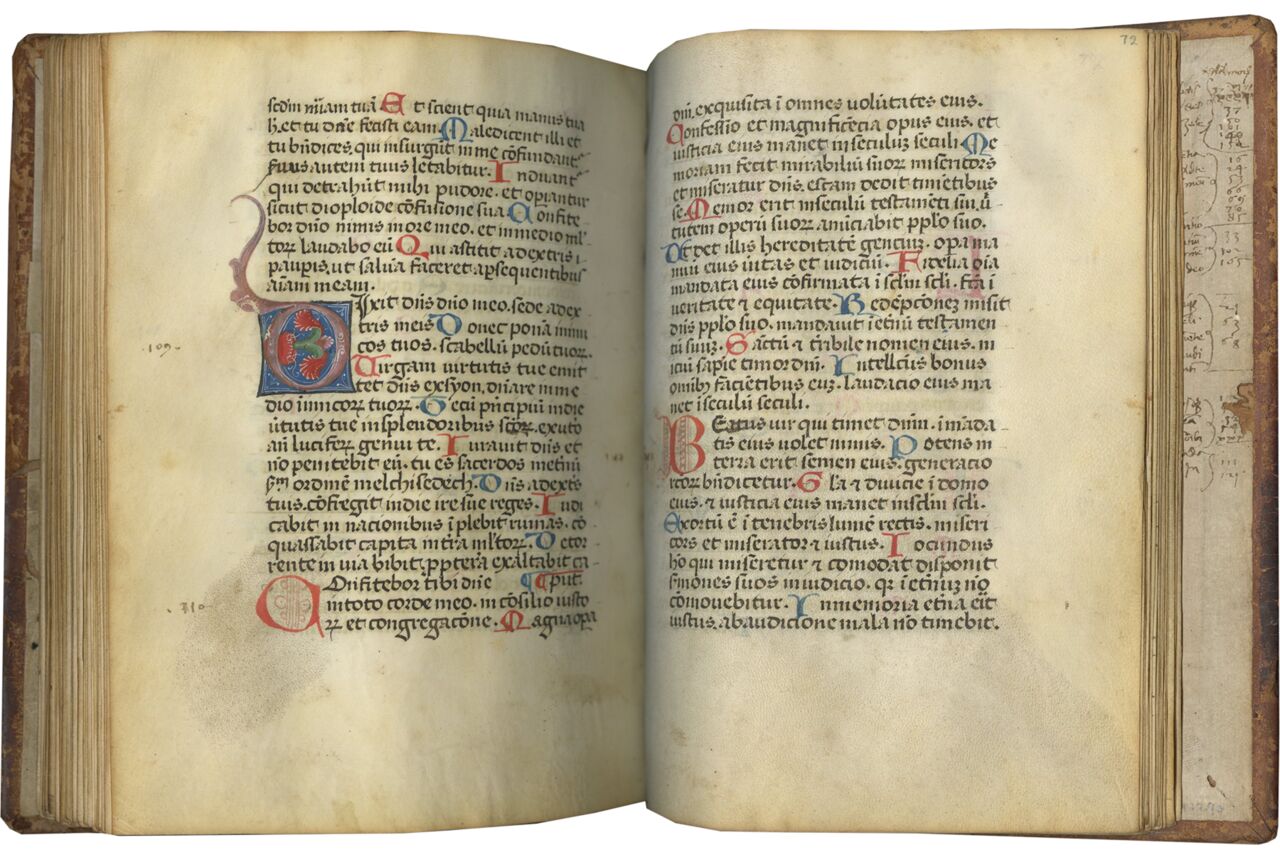 scdm mīam tuā Et scient quia manus tua
hec et tu dn̄e fecisti eam. Maledicent illi et
tu bn̄dices, qui insurgūt in me cōfundant
seruus autem tuus letabitur. Induant
qui detrahūt mihi pudore. et opiantur
sicut diploide cōfusione sua Confite
bor dn̄o nimis in ore meo. et in medio ml
torꝝ laudabo eū Qui astitit a dextris
paupis, ut salua faceret a psequentibus
aīam meam.
Dixit dn̄s dn̄o meo. sede a dex
tris meis Donec ponā inimi
cos tuos. scabellū pedū tuoꝝ.
Uirgam uirtutis tue emit
tet dn̄s ex syon, dn̄are in me
.109.
dio inimicoꝝ tuoꝝ. Tecū pn̄cipiū in die
ūtutis tue in splendoribus scōꝝ. ex uto
an̄ luciferꝝ genui te. Iurauit dn̄s et
nō penitebit eū. tu es sacerdos in etn̄ū
scdm ordinē melchisedech. Dn̄s a dextˢ
tuis. cōfregit in die ire sue reges. Iudi
cabit in nacionibus īplebit ruinas. cō
quassabit capita in tīra ml̄toꝝ. De tor
rente in uia bibit. ppterea exaltabit ca
Confitebor tibi dn̄e put
.110.
in toto corde meo. in cōsilio iusto
rꝝ et congregacōne. Magna opa
72
dnī. exquisita ī omnes uolūtates eius.
Confessio et magnificēcia opus eius. et
iusticia eius manet in seculuꝫ seculi Me
moriam fecit mirabiliū suoꝝ misericors
et miseratur dn̄s. escam dedit timētibus
se. Memor erit in seculū testamēti sui. ū
tutem operū suoꝝ anūciabit pplo suo.
Ut det illis hereditatē genciuꝫ. opa ma
nuū eius ūitas et iudiciū. Fidelia oīa
mandata eius cōfirmata ī sclm scli. fcā ī
ueritate ⁊ equitate. Redēpcōneꝫ misit
dn̄s pplo suo. mandauit ī etn̄ū testamen
tū suuꝫ. Sāctū ⁊ tribile nomen eius. in
iciū sapīe timor dnī. Intellectus bonus
omībꝫ facientibus euꝫ. laudacio eius ma
net ī seculū seculi.
Beatus uir qui timet dnm̄. ī māda
tis eius uolet nimis. Potens in
terra erit semen eius. generacio
rcoꝝ bn̄dicetur. Glā et diuicie ī domo
eius. ⁊ iusticia eius manet in sclm scli.
Exortū ē ī tenebris lumē rectis. miseri
cors et miserator ⁊ iustus. Iocundus
ho qui miseretur ⁊ comodat disponit
smones suos in iudicio. qꝛ ī etn̄uꝫ nō
cōmouebitur. In memoria etn̄a eīt
iustus. ab audicione mala nō timebit.